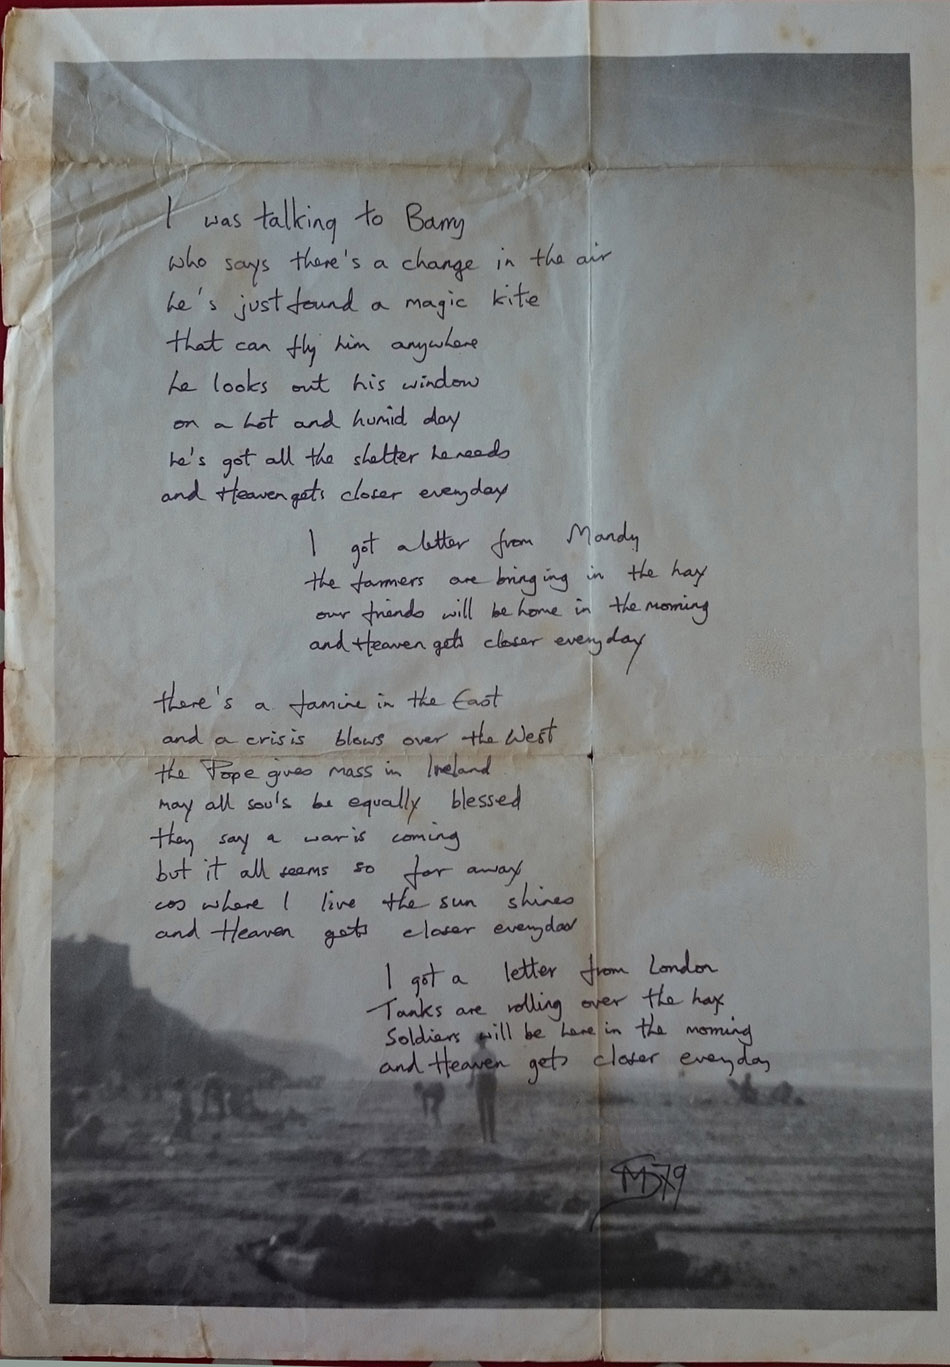 I was talking to Barry
who says there's a change in the air
he's just found a magic kite
that can fly him anywhere
he looks out his window
on a hot and humid day
he's got all the shelter he needs
and Heaven gets closer everyday
I got a letter from Mandy
the farmers are bringing in the hay
our friends will be home in the morning
and Heaven gets closer everyday
there's a famine in the East
and a crisis blows over the West
the Pope gives mass in Ireland
may all souls be equally blessed
they say a war is coming
but it all seems so far away
cos where I live the sun shines
and Heaven gets closer everyday
I got a letter from London
Tanks are rolling over the hay
Soldiers will be here in the morning
and Heaven gets closer everyday
79